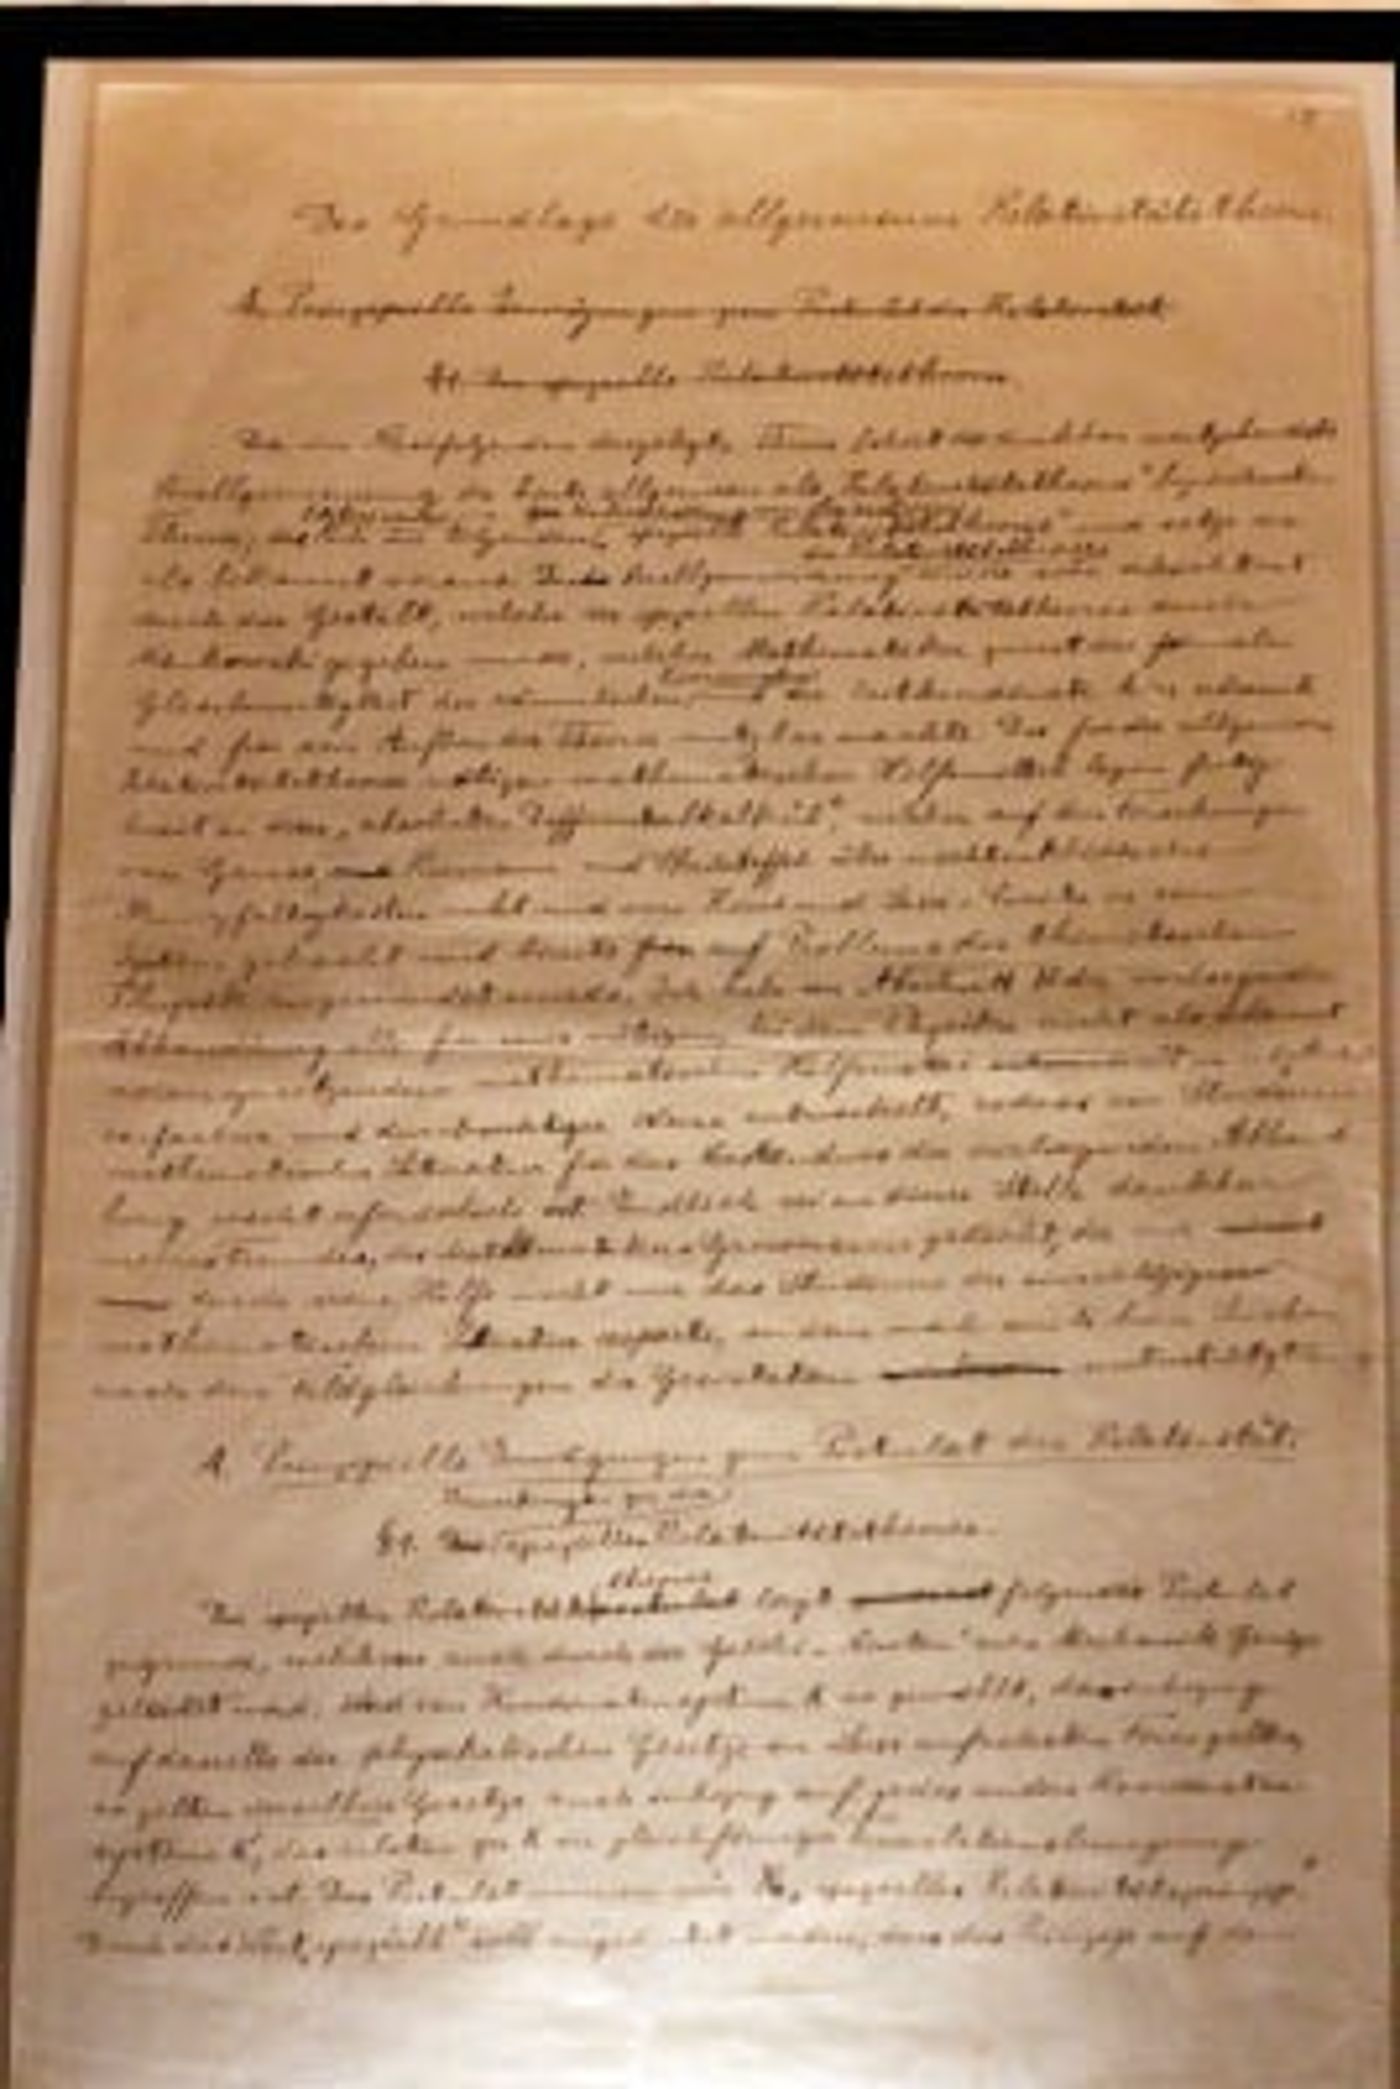 Die Grundlage der allgemeinen Relativitätstheorie.
A. Prinzipielle Erwägungen zum Postulat der Relativität
§1. Die spezielle Relativitätstheorie
Die im Nachfolgenden dargelegte Theorie bildet die denkbar weitgehendste
Verallgemeinerung der heute allgemein als „Relativitätstheorie" bezeichneten
Theorie; die im folgenden spezielle Relativitätstheorie" und setze sie
der Relativitätstheorie
als bekannt voraus. Die Verallgemeinerung wurde sehr erleichtert
durch die Gestalt, welche der speziellen Relativitätstheorie durch
Minkowski gegeben wurde, welcher Mathematiker zuerst die formale
Gleichwertigkeit der räumlichen und der Zeitkoordinate klar erkannte
und für den Aufbau der Theorie nutzbar machte. Die für die allgemeine
Relativitätstheorie nötigen mathematischen Hilfsmittel lagen fertig
bereit in dem „absoluten Differentialkalkül", welcher auf den Forschungen
von Gauss, Riemann und Christoffel über nichteuklidische
Mannigfaltigkeiten ruht und von Ricci und Levi-Civita in ein
System gebracht und bereits auf Probleme der theoretischen
Physik angewendet wurde. Ich habe im Abschnitt B der vorliegenden
Abhandlung alle für uns nötigen, bei dem Physiker nicht als bekannt
vorauszusetzenden mathematischen Hilfsmittel in
einfacher und durchsichtiger Weise entwickelt, sodass ein Studium
mathematischer Literatur für das Verständnis der vorliegenden Abhand-
lung nicht erforderlich ist. Endlich sei an dieser Stelle dankbar
meines Freundes, des Mathematikers Grossmann gedacht, der mir
durch seine Hilfe nicht nur das Studium der einschlägigen
mathematischen Literatur ersparte, sondern mich auch beim Suchen
nach den Feldgleichungen der Gravitation unterstützte.
A. Prinzipielle Erwägungen zum Postulat der Relativität.
Bemerkungen zu der
§1. Die spezielle Relativitätstheorie.
theorie
Der speziellen Relativitäts liegt folgendes Postulat
zugrunde, welchem auch durch die Galilei-Newton'sche Mechanik Genüge
geleistet wird: Wird ein Koordinatensystem K so gewählt, dass inbezug
auf dasselbe die physikalischen Gesetze in ihrer einfachsten Form gelten,
so gelten dieselben Gesetze auch inbezug auf jedes andere Koordinaten-
system K', das relativ zu K in gleichförmiger Translationsbewegung
begriffen ist. Dies Postulat nennen wir „spezielles Relativitätsprinzip".
Durch das Wort „speziell" soll angedeutet werden, dass das Prinzip auf den